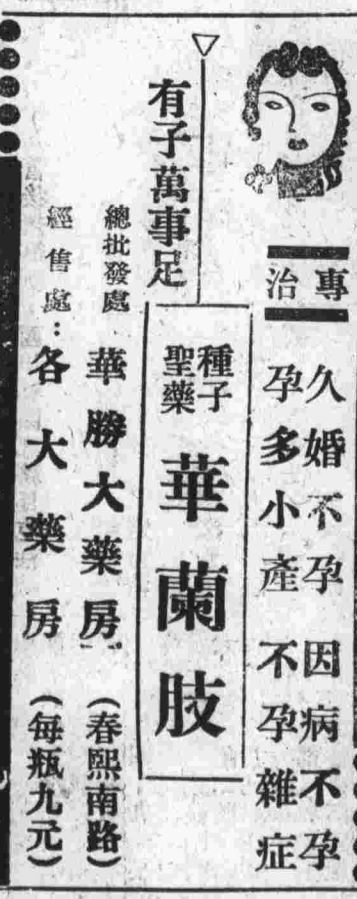 專治
久婚不孕因病不孕
孕多小產不孕雜症
種子
聖藥
華蘭肢
有子萬事足
總批發處 華勝大藥房 (春熙南路)
經售處：各大藥房 (每瓶九元)